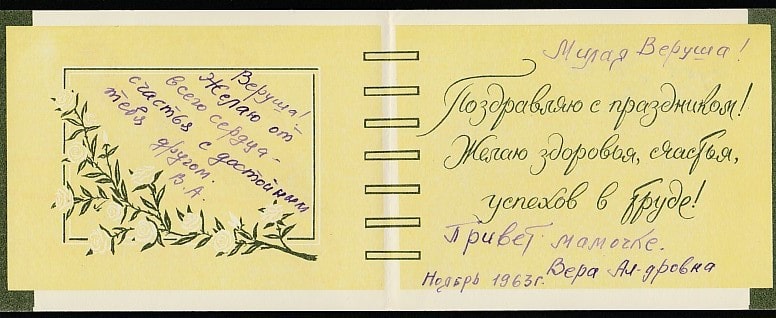 Веруша!
Желаю от
всего сердца -
счастья с достойным
тебя другом.
В.А.
Милая Веруша!
Поздравляю с праздником!
Желаю здоровья, счастья,
успехов в труде!
Привет мамочке.
Вера Ал-дровна
Ноябрь 1963г.